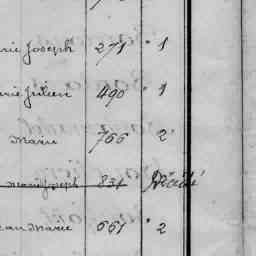 rie Joseph 271 " 1
rie Julien 490 " 1
Marie 766 2
Marie Joseph 834 Décédé
ean Marie 661 " 2